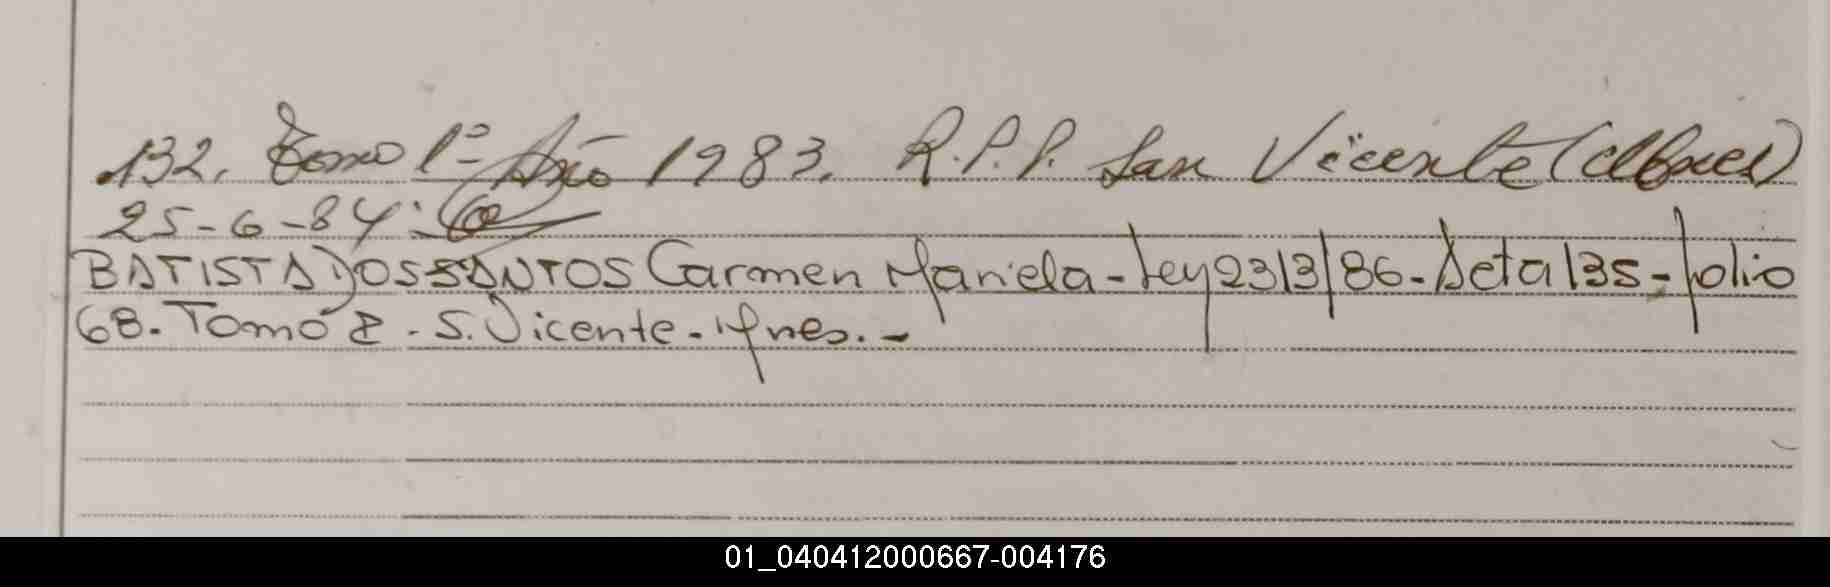 132. Tomo 1º Año 1983. R.P.P. San Vicente (Mnes)
25-6-84:
BATISTA DOS SANTOS Carmen Mariela - Ley 23/3/86 - Acta 135 - folio
68. Tomo 2 - S. Vicente - Mnes. -
01_040412000667-004176